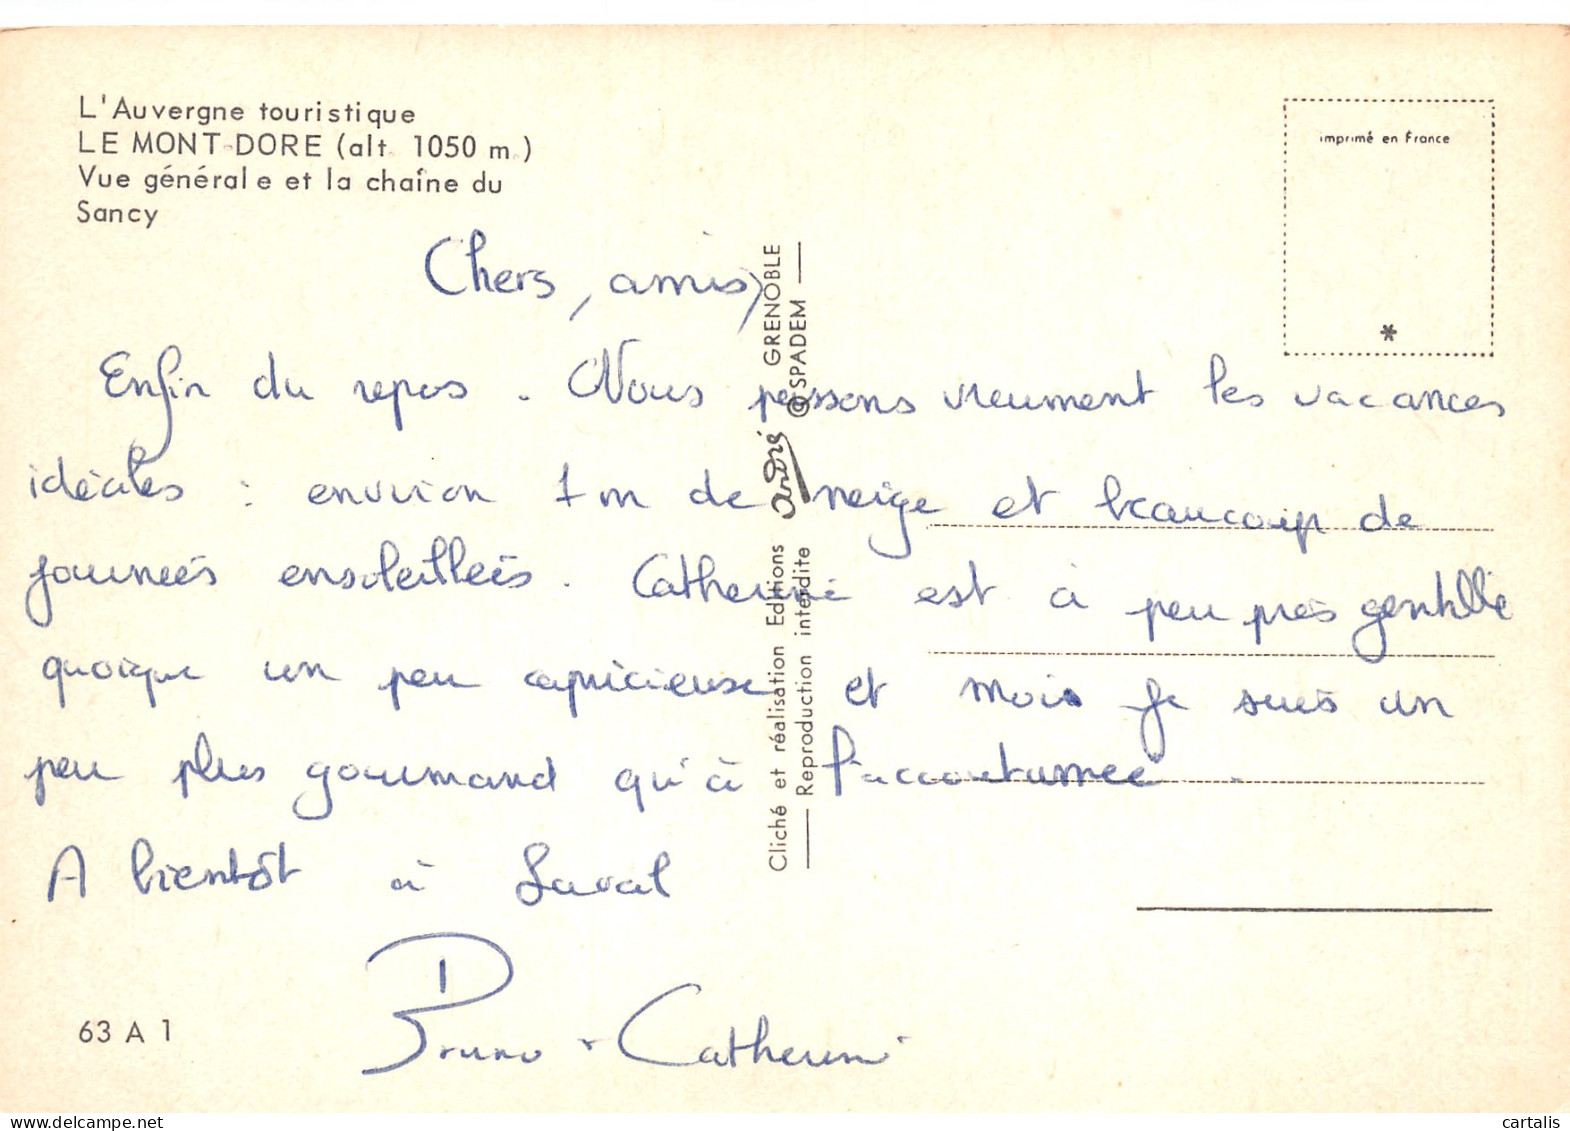 L'Auvergne touristique
LE MONT-DORE (alt. 1050 m.)
Vue générale et la chaîne du
Sancy
imprimé en France
*
Chers amis,
Enfin du repos. Nous passons vraiment les vacances
idéales : environ 1 m de neige et beaucoup de
journées ensoleillées. Catherine est à peu près gentille
quoique un peu capricieuse et moi je suis un
peu plus gourmand qu'à l'accoutumée.
A bientôt à Laval
Bruno + Catherine
Cliché et réalisation Editions andré GRENOBLE
Reproduction interdite © SPADEM
63 A 1
delcampe.net
cartalis